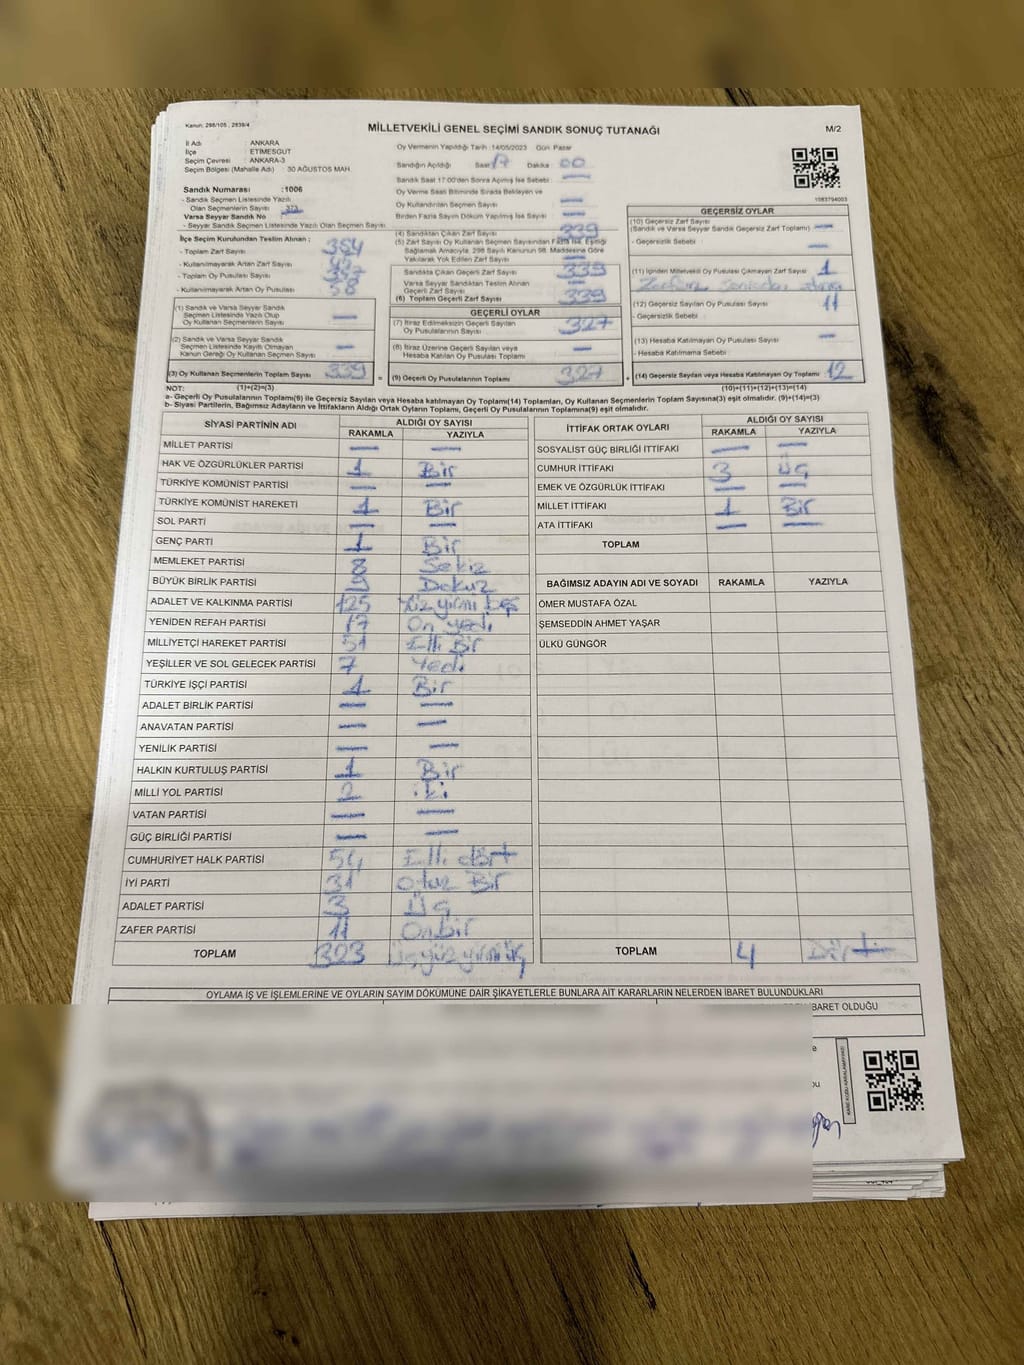 Kanun: 298/105, 2839/4
MİLLETVEKİLİ GENEL SEÇİMİ SANDIK SONUÇ TUTANAĞI
M/2
İl Adı : ANKARA
İlçe : ETİMESGUT
Seçim Çevresi : ANKARA-3
Seçim Bölgesi (Mahalle Adı) : 30 AĞUSTOS MAH.
Oy Vermenin Yapıldığı Tarih :14/05/2023 Gün :Pazar
Sandığın Açıldığı Saat 17 Dakika 00
Sandık Saat 17:00'den Sonra Açılmış İse Sebebi : —
Oy Verme Saati Bitiminde Sırada Bekleyen ve
Oy Kullandırılan Seçmen Sayısı : —
Birden Fazla Sayım Döküm Yapılmış İse Sayısı : —
Sandık Numarası :1006
- Sandık Seçmen Listesinde Yazılı
Olan Seçmenlerin Sayısı : 373
Varsa Seyyar Sandık No :
- Seyyar Sandık Seçmen Listesinde Yazılı Olan Seçmen Sayısı
İlçe Seçim Kurulundan Teslim Alınan :
- Toplam Zarf Sayısı : 384
- Kullanılmayarak Artan Zarf Sayısı :
- Toplam Oy Pusulası Sayısı :
- Kullanılmayarak Artan Oy Pusulası : 58
(1) Sandık ve Varsa Seyyar Sandık
Seçmen Listesinde Yazılı Olup
Oy Kullanan Seçmenlerin Sayısı : —
(2) Sandık ve Varsa Seyyar Sandık
Seçmen Listesinde Kayıtlı Olmayan
Kanun Gereği Oy Kullanan Seçmen Sayısı : —
(3) Oy Kullanan Seçmenlerin Toplam Sayısı : 339
(4) Sandıktan Çıkan Zarf Sayısı : 339
(5) Zarf Sayısı Oy Kullanan Seçmen Sayısından Fazla İse, Eşitliği
Sağlamak Amacıyla, 298 Sayılı Kanunun 98. Maddesine Göre
Yakılarak Yok Edilen Zarf Sayısı : —
Sandıkta Çıkan Geçerli Zarf Sayısı : 339
Varsa Seyyar Sandıktan Teslim Alınan
Geçerli Zarf Sayısı : —
(6) Toplam Geçerli Zarf Sayısı : 339
GEÇERLİ OYLAR
(7) İtiraz Edilmeksizin Geçerli Sayılan
Oy Pusulalarının Sayısı : 327
(8) İtiraz Üzerine Geçerli Sayılan veya
Hesaba Katılan Oy Pusulası Toplamı : —
= (9) Geçerli Oy Pusulalarının Toplamı : 327
1083794003
GEÇERSİZ OYLAR
(10) Geçersiz Zarf Sayısı
(Sandık ve Varsa Seyyar Sandık Geçersiz Zarf Toplamı) : —
- Geçersizlik Sebebi : —
(11) İçinden Milletvekili Oy Pusulası Çıkmayan Zarf Sayısı : 1
(12) Geçersiz Sayılan Oy Pusulası Sayısı : 11
- Geçersizlik Sebebi :
(13) Hesaba Katılmayan Oy Pusulası Sayısı : —
- Hesaba Katılmama Sebebi :
+ (14) Geçersiz Sayılan veya Hesaba Katılmayan Oy Toplamı : 12
NOT: (1)+(2)=(3) (10)+(11)+(12)+(13)=(14)
a- Geçerli Oy Pusulalarının Toplamı(9) ile Geçersiz Sayılan veya Hesaba katılmayan Oy Toplamı(14) Toplamları, Oy Kullanan Seçmenlerin Toplam Sayısına(3) eşit olmalıdır. (9)+(14)=(3)
b- Siyasi Partilerin, Bağımsız Adayların ve İttifakların Aldığı Ortak Oyların Toplamı, Geçerli Oy Pusulalarının Toplamına(9) eşit olmalıdır.
SİYASİ PARTİNİN ADI ALDIĞI OY SAYISI
RAKAMLA YAZIYLA
MİLLET PARTİSİ — —
HAK VE ÖZGÜRLÜKLER PARTİSİ 1 Bir
TÜRKİYE KOMÜNİST PARTİSİ — —
TÜRKİYE KOMÜNİST HAREKETİ 1 Bir
SOL PARTİ — —
GENÇ PARTİ 1 Bir
MEMLEKET PARTİSİ 8 Sekiz
BÜYÜK BİRLİK PARTİSİ 9 Dokuz
ADALET VE KALKINMA PARTİSİ 125 Yüz yirmi beş
YENİDEN REFAH PARTİSİ 17 On yedi
MİLLİYETÇİ HAREKET PARTİSİ 51 Elli Bir
YEŞİLLER VE SOL GELECEK PARTİSİ 7 Yedi
TÜRKİYE İŞÇİ PARTİSİ 1 Bir
ADALET BİRLİK PARTİSİ — —
ANAVATAN PARTİSİ — —
YENİLİK PARTİSİ — —
HALKIN KURTULUŞ PARTİSİ 1 Bir
MİLLİ YOL PARTİSİ 2 iki
VATAN PARTİSİ — —
GÜÇ BİRLİĞİ PARTİSİ — —
CUMHURİYET HALK PARTİSİ 54 Elli dört
İYİ PARTİ 31 Otuz Bir
ADALET PARTİSİ 3 Üç
ZAFER PARTİSİ 11 Onbir
TOPLAM 323 Üçyüzyirmiüç
İTTİFAK ORTAK OYLARI ALDIĞI OY SAYISI
RAKAMLA YAZIYLA
SOSYALİST GÜÇ BİRLİĞİ İTTİFAKI — —
CUMHUR İTTİFAKI 3 Üç
EMEK VE ÖZGÜRLÜK İTTİFAKI — —
MİLLET İTTİFAKI 1 Bir
ATA İTTİFAKI — —
TOPLAM
BAĞIMSIZ ADAYIN ADI VE SOYADI RAKAMLA YAZIYLA
ÖMER MUSTAFA ÖZAL
ŞEMSEDDİN AHMET YAŞAR
ÜLKÜ GÜNGÖR
TOPLAM 4 Dört
OYLAMA İŞ VE İŞLEMLERİNE VE OYLARIN SAYIM DÖKÜMÜNE DAİR ŞİKAYETLERLE BUNLARA AİT KARARLARIN NELERDEN İBARET BULUNDUKLARI
İBARET OLDUĞU